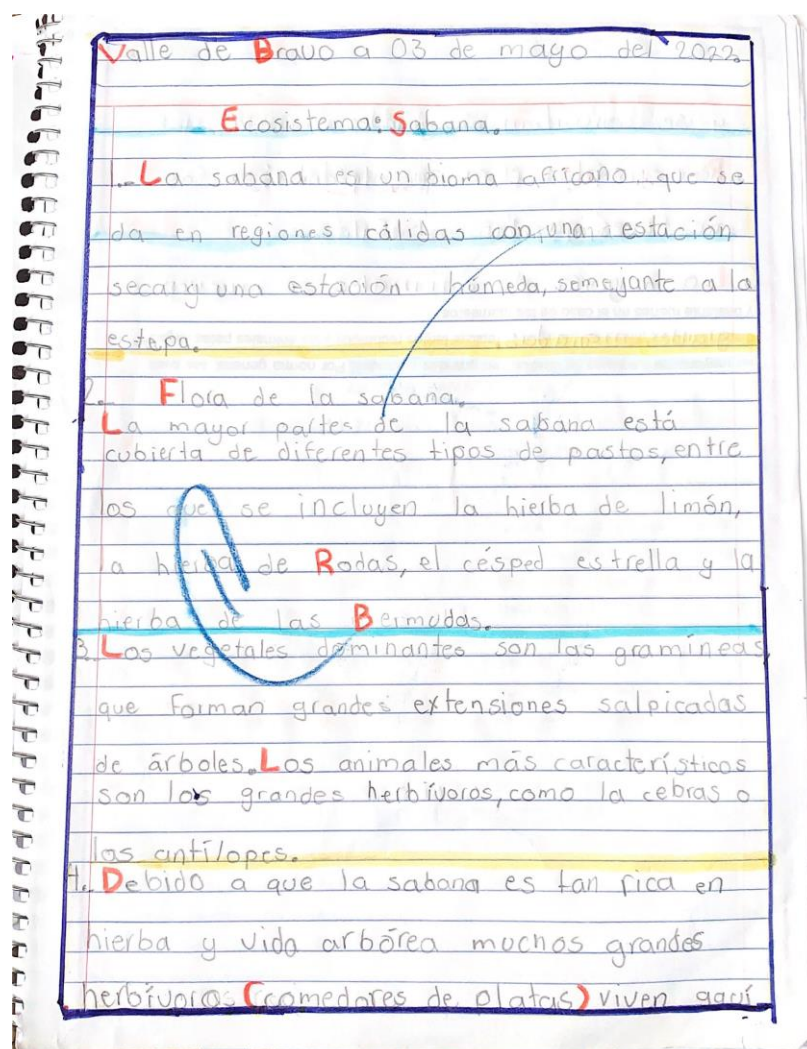 Valle de Bravo a 03 de mayo del 2022.
Ecosistema: Sabana.
1.- La sabana es un bioma africano que se
da en regiones cálidas con una estación
seca y una estación húmeda, semejante a la
estepa.
2.- Flora de la sabana.
La mayor partes de la sabana está
cubierta de diferentes tipos de pastos, entre
los que se incluyen la hierba de limón,
a hierba de Rodas, el césped estrella y la
hierba de las Bermudas.
3. Los vegetales dominantes son las gramíneas
que forman grandes extensiones salpicadas
de árboles. Los animales más característicos
son los grandes herbívoros, como la cebras o
los antílopes.
4. Debido a que la sabana es tan rica en
hierba y vida arbórea muchos grandes
herbívoros (comedores de platas) viven aquí